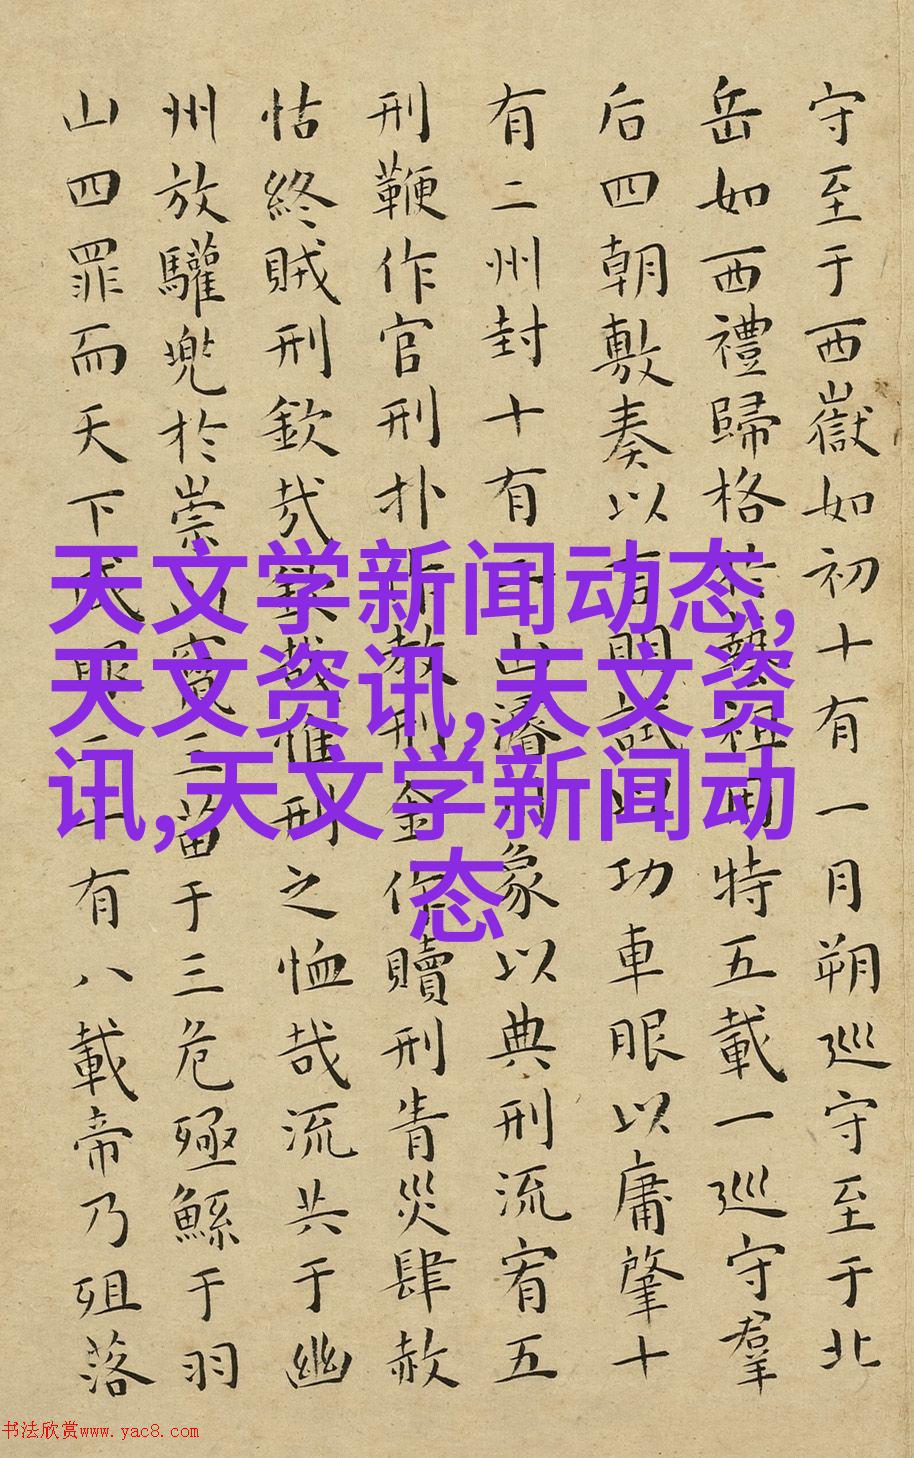 守至于西嶽如初十有一月朔巡守至于北
岳如西禮歸格於藝祖用特五載一巡守羣
后四朝敷奏以言明試以功車眼以庸肇十
有二州封十有二山濬川象以典刑流宥五
刑鞭作官刑扑作教刑金作贖刑眚災肆赦
怙終賊刑欽哉欽哉惟刑之恤哉流共于幽
州放驩兜於崇山竄三苗于三危殛鯀于羽
山四罪而天下咸服二十有八載帝乃殂落
天文学新闻动态,
天文资讯,天文资
讯,天文学新闻动
态
书法欣赏www.yac8.com